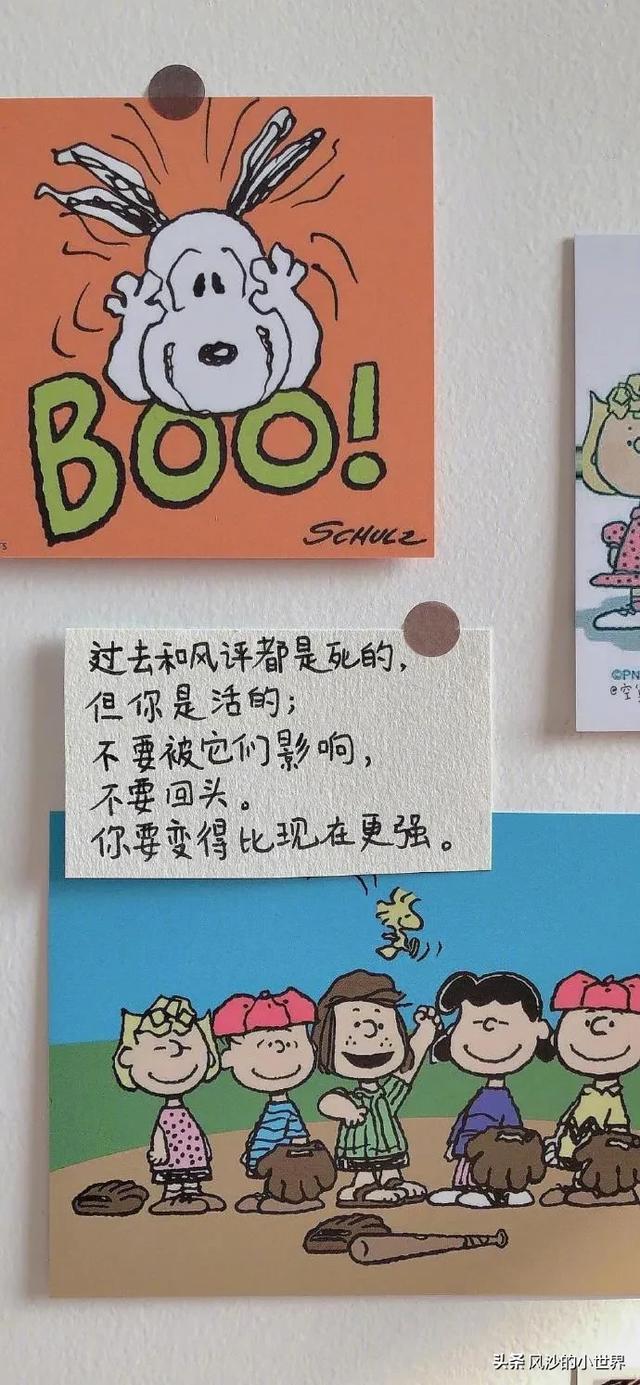 BOO!
SCHULZ
过去和风评都是死的，
但你是活的；
不要被它们影响，
不要回头。
你要变得比现在更强。
©PN
@空
头条 风沙的小世界